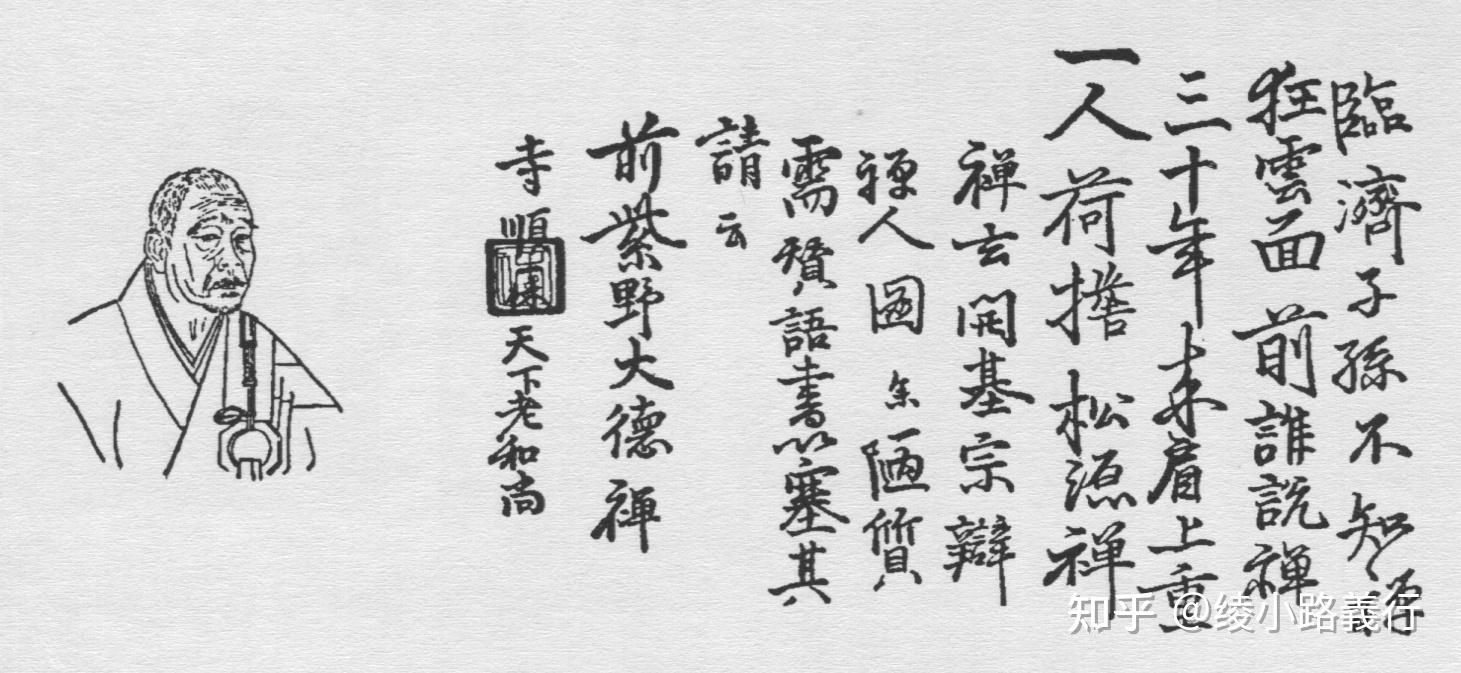 臨濟子孫不知禅
狂雲面前誰説禅
三十年来肩上重
一人荷擔松源禅
禅玄開基宗辯
禅人図余陋質
需賛語書以塞其
請云
前紫野大德禅
寺
順
天下老和尚
知乎 @绫小路義行